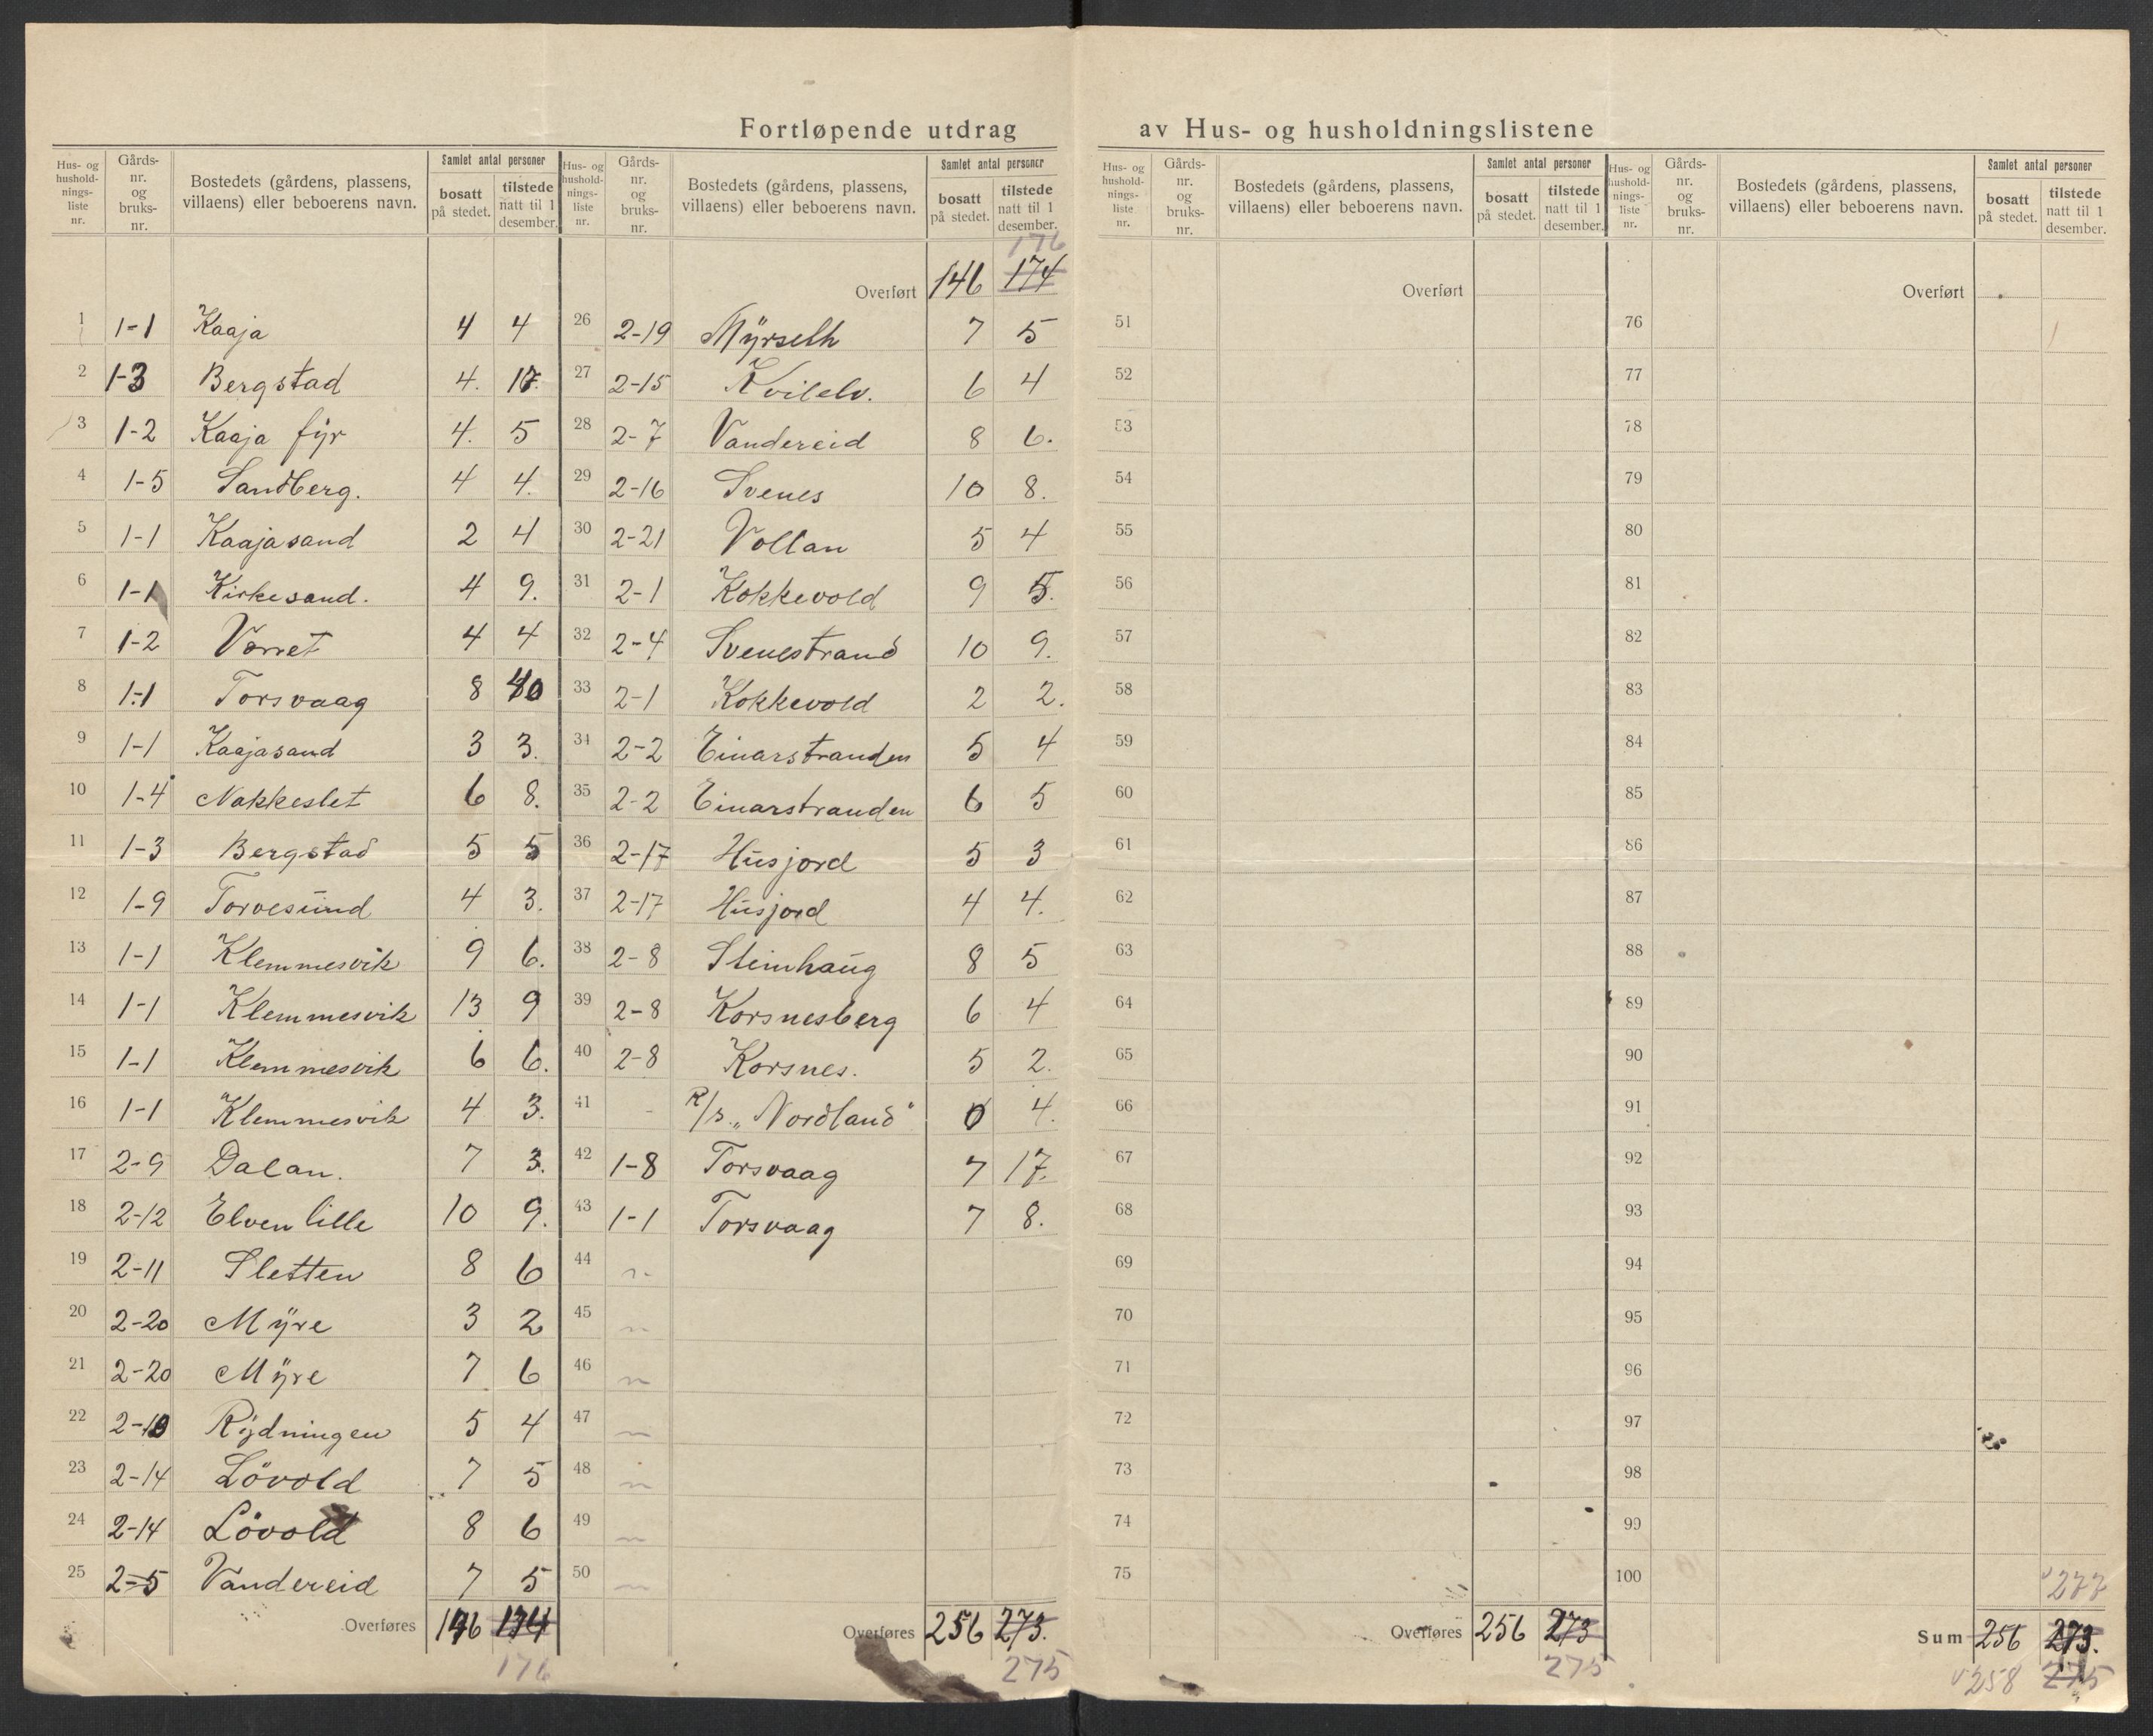 Fortløpende utdrag av Hus- og husholdningslistene
Hus- og hushold- nings- liste nr. Gårds- nr. og bruks- nr. Bostedets (gårdens, plassens, villaens) eller beboerens navn. Samlet antal personer bosatt på stedet. tilstede natt til 1 desember.
1 1-1 Kaaja 4 4
2 1-3 Bergstad 4. 17.
3 1-2 Kaaja fÿr 4. 5
4 1-5 Sandberg. 4 4.
5 1-1 Kaajasand 2 4
6 1-1 Kirkesand. 4 9.
7 1-2 Vorret 4 4
8 1-1 Torsvaag 8 40
9 1-1 Kaajasand 3 3.
10 1-4 Nakkeslet 6 8.
11 1-3 Bergstad 5 5
12 1-9 Torvesund 4 3.
13 1-1 Klemmesvik 9 6.
14 1-1 Klemmesvik 13 9
15 1-1 Klemmesvik 6 6.
16 1-1 Klemmesvik 4 3.
17 2-9 Dalan. 7 3.
18 2-12 Elven lille 10 9.
19 2-11 Sletten 8 6
20 2-20 Mÿre 3 2
21 2-20 Mÿre 7 6
22 2-10 Rÿdningen 5 4
23 2-14 Lövold 7 5
24 2-14 Lövold 8 6
25 2-5 Vandereid 7 5
Overføres 146 174
176
Hus- og hushold- nings- liste nr. Gårds- nr. og bruks- nr. Bostedets (gårdens, plassens, villaens) eller beboerens navn. Samlet antal personer bosatt på stedet. tilstede natt til 1 desember.
176
Overført 146 174
26 2-19 Mÿrseth 7 5
27 2-15 Kvilelv. 6 4
28 2-7 Vandereid 8 6.
29 2-16 Svenes 10 8.
30 2-21 Vollan 5 4
31 2-1 Kokkevold 9 5.
32 2-4 Svenestrand 10 9.
33 2-1 Kokkevold 2 2.
34 2-2 Einarstranden 5 4
35 2-2 Einarstranden 6 5
36 2-17 Husjord 5 3
37 2-17 Husjord 4 4.
38 2-8 Steinhaug 8 5
39 2-8 Korsnesberg 6 4
40 2-8 Korsnes. 5 2.
41 - R/s „Nordland" 0 4.
42 1-8 Torsvaag 7 17.
43 1-1 Torsvaag 7 8.
44
45
46
47
48
49
50
Overføres 256 273.
275
Hus- og hushold- nings- liste nr. Gårds- nr. og bruks- nr. Bostedets (gårdens, plassens, villaens) eller beboerens navn. Samlet antal personer bosatt på stedet. tilstede natt til 1 desember.
Overført
51
52
53
54
55
56
57
58
59
60
61
62
63
64
65
66
67
68
69
70
71
72
73
74
75
Overføres 256 273
275
Hus- og hushold- nings- liste nr. Gårds- nr. og bruks- nr. Bostedets (gårdens, plassens, villaens) eller beboerens navn. Samlet antal personer bosatt på stedet. tilstede natt til 1 desember.
Overført
76
77
78
79
80
81
82
83
84
85
86
87
88
89
90
91
92
93
94
95
96
97
98
99
100
277
Sum 256 273.
258 275